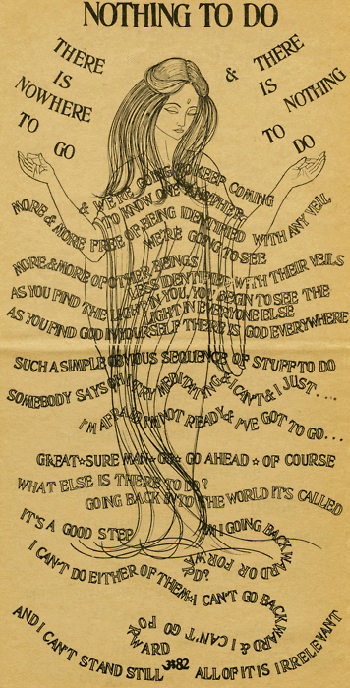 NOTHING TO DO
THERE
IS
NOWHERE
TO GO
&
THERE
IS
NOTHING
TO DO
& WE'RE GOING TO KEEP COMING
TO KNOW ONE ANOTHER
MORE & MORE FREE OF BEING IDENTIFIED WITH ANY VEIL
WE'RE GOING TO SEE
MORE & MORE OF OTHER BEINGS
LESS IDENTIFIED WITH THEIR VEILS
AS YOU FIND THE LIGHT IN YOU, YOU BEGIN TO SEE THE
LIGHT IN EVERYONE ELSE
AS YOU FIND GOD IN YOURSELF THERE IS GOD EVERYWHERE
SUCH A SIMPLE OBVIOUS SEQUENCE OF STUFF TO DO
SOMEBODY SAYS OH I TRY MEDITATING & I CAN'T & I JUST....
I'M AFRAID I'M NOT READY & I'VE GOT TO GO...
GREAT★SURE MAN★GO★ GO AHEAD ★ OF COURSE
WHAT ELSE IS THERE TO DO?
GOING BACK INTO THE WORLD IT'S CALLED
IT'S A GOOD STEP
AM I GOING BACKWARD OR FORWARD?
I CAN'T DO EITHER OF THEM★I CAN'T GO BACKWARD & I CAN'T GO FORWARD
AND I CAN'T STAND STILL
ALL OF IT IS IRRELEVANT
82